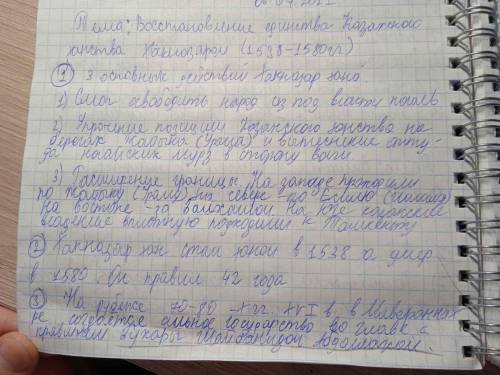 Тема: Восстановление единства Казахского
ханства Хакназаром (1538-1580гг)
① 3 основных действий Хакназар хана.
1) Смог освободить народ из под власти ногаев
2) Упрочение позиции Казахского ханства на
берегах Жайыка (Урала) и вытеснение отту-
да ногайских мурз в сторону волги.
3) Расширение границы. На западе проходили
по Жайыку (Урал), на севере - до Есилю (Ишима)
на востоке - за Балхашом на юге казахские
владения вплотную подходили к Ташкенту
② Хакназар хан стал ханом в 1538 а умер
в 1580. Он правил 42 года
③ На рубеже 70-80 -х гг. XVI в. в Мавераннах
ре создается сильное государство во главе с
правителем Бухары Шайбанидом Абдаллахом.